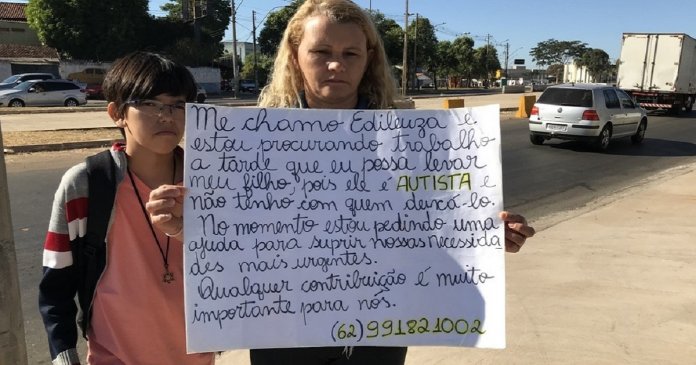 Me chamo Edileuza e
estou procurando trabalho
a tarde que eu possa levar
meu filho, pois ele é AUTISTA e
não tenho com quem deixá-lo.
No momento estou pedindo uma
ajuda para suprir nossas necessida
des mais urgentes.
Qualquer contribuição é muito
importante para nós.
(62) 991821002